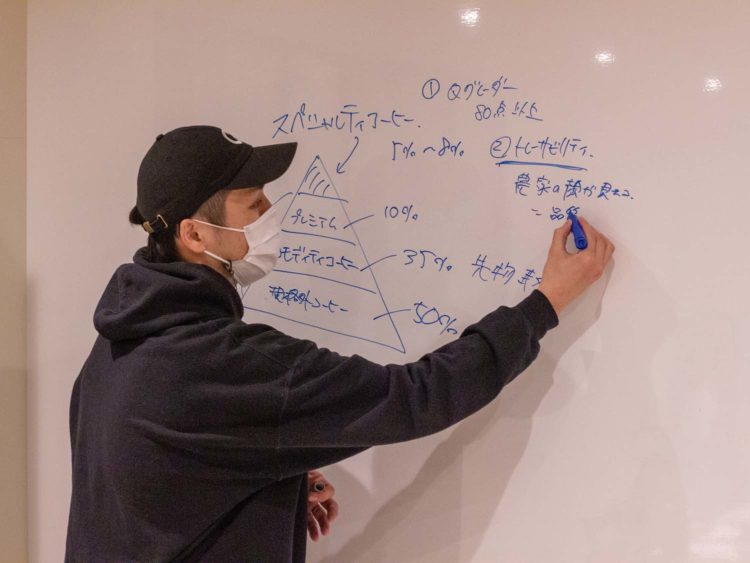 ① Qグレーダー
80点以上
スペシャルティコーヒー.
5%〜8%
② トレーサビリティ.
農家の顔が見える.
= 品質
プレミアム
10%
コモディティコーヒー
35%
先物
規格外コーヒー
50%